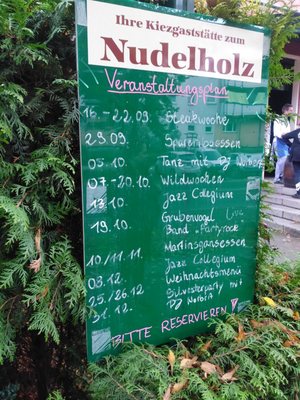 Ihre Kiezgaststätte zum
Nudelholz
Veranstaltungsplan
16.-22.09. Steakwoche
29.09. Spanferkelessen
05.10. Tanz mit DJ Norbert
07.-20.10. Wildwochen
13.10. Jazz Collegium
19.10. Grubenvogel Live
Band - Partyrock
10/11.11. Martinsgansessen
Jazz Collegium
08.12. Weihnachtsmenü
25/26.12 Silvesterparty mit
31.12. DJ Norbert
BITTE RESERVIEREN!